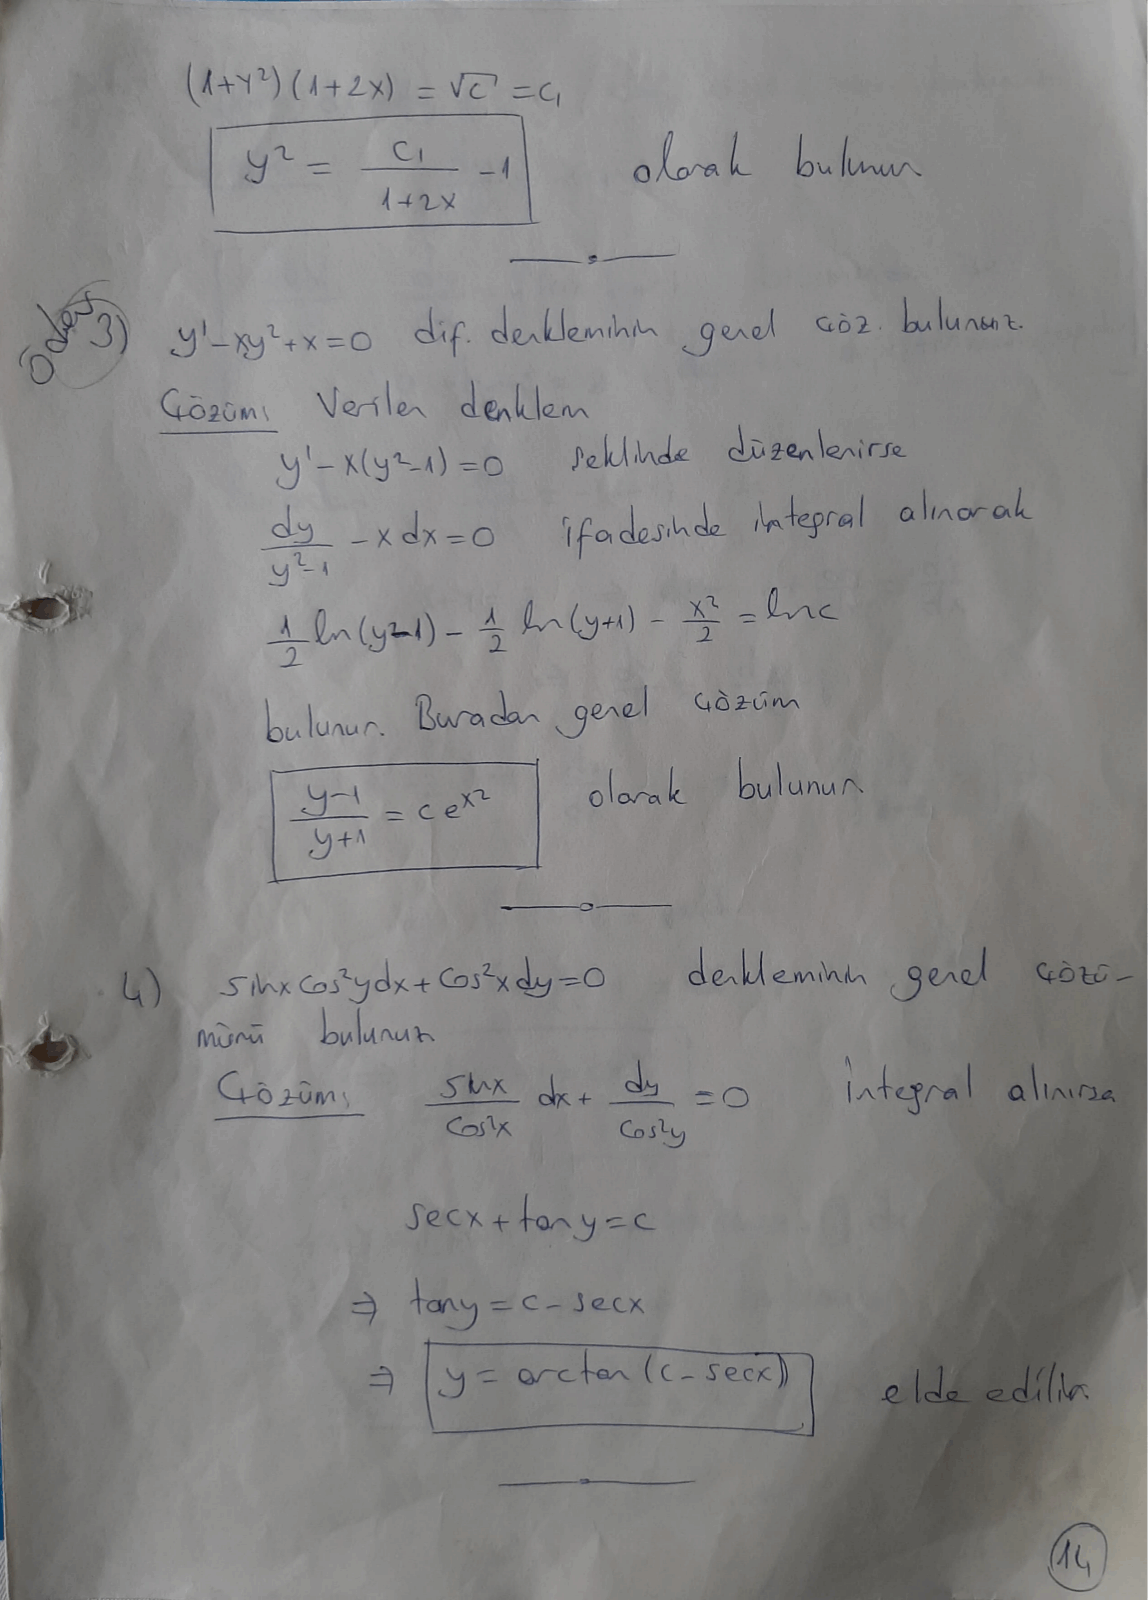 (1+y²)(1+2x) = √c = c₁
y² = c₁/(1+2x) - 1 olarak bulunur
Ödev 3) y' - xy² + x = 0 dif. denkleminin genel çöz. bulunuz.
Çözüm: Verilen denklem
y' - x(y²-1) = 0 şeklinde düzenlenirse
dy/(y²-1) - x dx = 0 ifadesinde integral alınarak
1/2 ln(y-1) - 1/2 ln(y+1) - x²/2 = ln c
bulunur. Buradan genel çözüm
(y-1)/(y+1) = c e^(x²) olarak bulunur
4) sinx cos²y dx + cos²x dy = 0 denkleminin genel çözü-
münü bulunuz
Çözüm: sinx/cos²x dx + dy/cos²y = 0 İntegral alınırsa
secx + tany = c
⇒ tany = c - secx
⇒ y = arctan(c - secx) elde edilir.
14